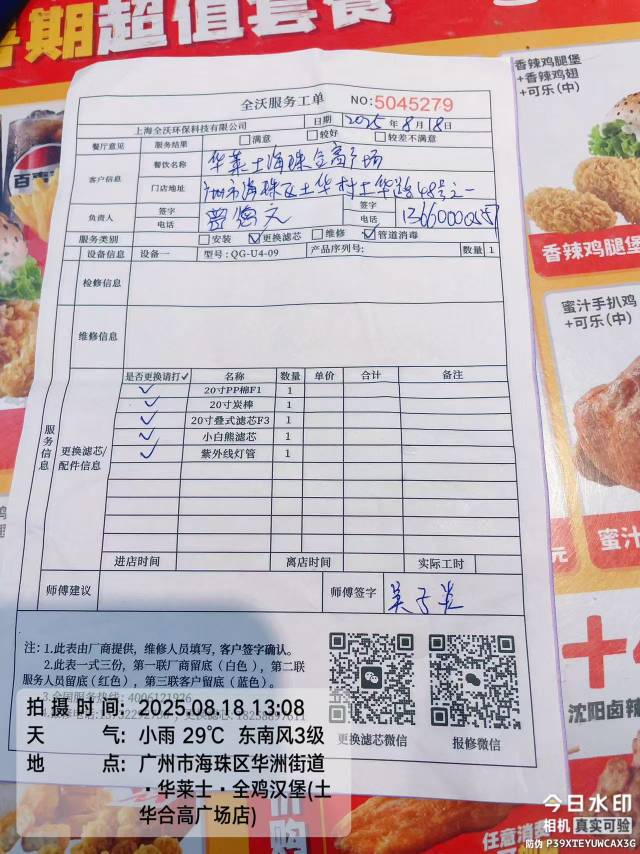 期超值套餐
全沃服务工单 NO:5045279
上海全沃环保科技有限公司 日期 2025年8月18日
餐厅意见 服务结果 □满意 □较好 □较差不满意
客户信息 餐饮名称 华莱士海珠合高广场
门店地址 广州市海珠区土华村土华路48号之一
负责人 签字 电话 签字 电话
服务类别 □安装 ☑更换滤芯 □维修 ☑管道消毒
设备信息 设备一 型号:QG-U4-09 产品序列号: 数量 1
检修信息
维修信息
服务信息
更换滤芯/配件信息
是否更换请打✓ 名称 数量 单价 合计 备注
✓ 20寸PP棉F1 1
✓ 20寸炭棒 1
✓ 20寸叠式滤芯F3 1
✓ 小白熊滤芯 1
✓ 紫外线灯管 1
进店时间 离店时间 实际工时
师傅建议 师傅签字
注:1.此表由厂商提供,维修人员填写,客户签字确认。
2.此表一式三份,第一联厂商留底(白色),第二联
服务人员留底(红色),第三联客户留底(蓝色)。
3.全国服务热线:4006121926
更换滤芯微信 报修微信
拍摄时间: 2025.08.18 13:08
天气: 小雨 29℃ 东南风3级
地点: 广州市海珠区华洲街道
·华莱士·全鸡汉堡(土
华合高广场店)
香辣鸡腿堡
+香辣鸡翅
+可乐(中)
香辣鸡腿堡
蜜汁手扒鸡
+可乐(中)
元
蜜汁
+
沈阳卤辣
任意消费
百事
今日水印
相机 真实可验
防伪 P39XTEYUWCAX3G